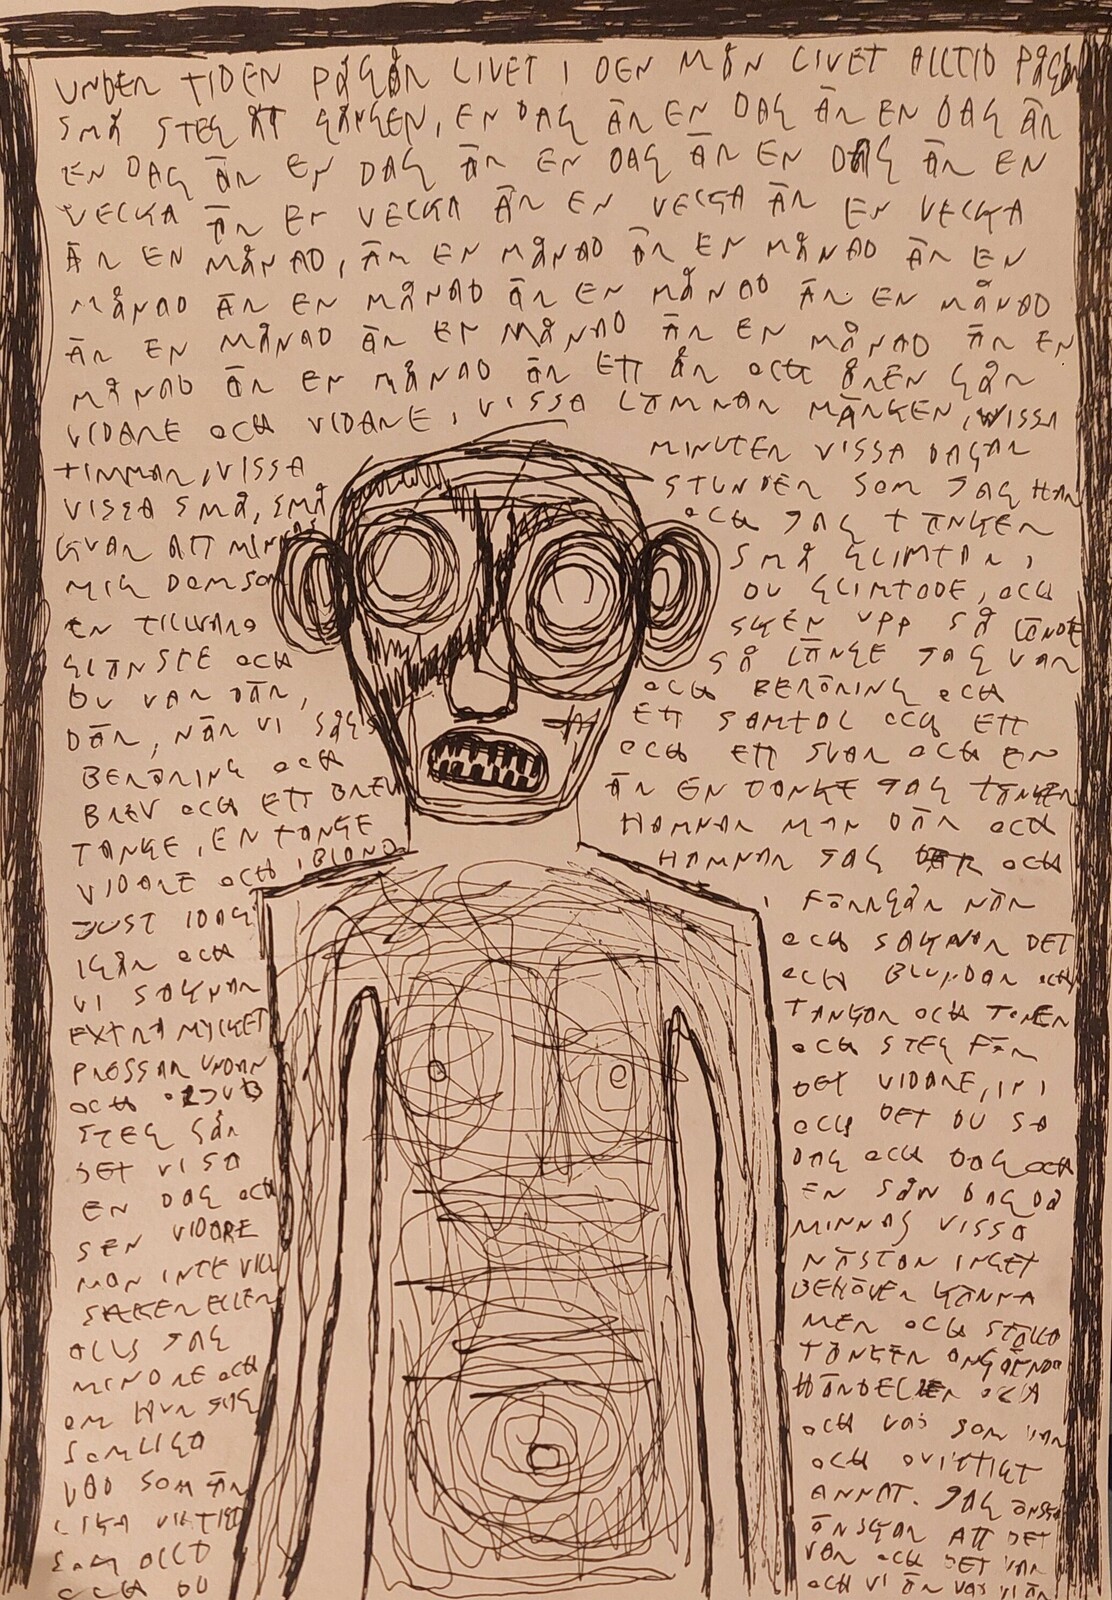 UNDER TIDEN PÅGÅR LIVET I DEN MÅN LIVET ALLTID PÅGÅR
SMÅ STEG ÅT GÅNGEN, EN DAG ÄR EN DAG ÄR EN DAG ÄR
EN DAG ÄR EN DAG ÄR EN DAG ÄR EN DAG ÄR EN
VECKA ÄR EN VECKA ÄR EN VECKA ÄR EN VECKA
ÄR EN MÅNAD, ÄR EN MÅNAD ÄR EN MÅNAD ÄR EN
MÅNAD ÄR EN MÅNAD ÄR EN MÅNAD ÄR EN MÅNAD
ÄR EN MÅNAD ÄR EN MÅNAD ÄR EN MÅNAD ÄR EN
MÅNAD ÄR EN MÅNAD ÄR ETT ÅR OCH ÅREN GÅR
VIDARE OCH VIDARE, VISSA LÄMNAR MÄRKEN, VISSA
TIMMAR, VISSA MINUTER VISSA DAGAR
VISSA SMÅ, SMÅ STUNDER SOM JAG HAR
KVAR ATT MINNAS OCH JAG TÄNKER
MIG DOM SOM SMÅ GLIMTAR,
EN TILLVARO DU GLIMTADE, OCH
GLÄNSTE OCH SKEN UPP SÅ LÄNGE
DU VAR DÄR, SÅ LÄNGE JAG VAR
DÄR, NÄR VI SÅGS OCH BERÖRING OCH
BERÖRING OCH ETT SAMTAL OCH ETT
BREV OCH ETT BREV OCH ETT SVAR OCH EN
TANKE, EN TANKE ÄR EN TANKE JAG TÄNKER
VIDARE OCH IBLAND HAMNAR MAN DÄR OCH
JUST IDAG HAMNAR JAG OCH
IGÅR OCH I FÖRRGÅR NÄR
VI SAKNAR OCH SAKNAR DET
EXTRA MYCKET OCH BLUNDAR OCH
PRESSAR UNDAN TANKAR OCH
OCH OCH STEG FÖR
STEG GÅR DET VIDARE, IN I
DET VI SA OCH DET DU SA
EN DAG OCH DAG OCH DAG OCH
SEN VIDARE EN SÅN DAG DÅ
MAN INTE VILL MINNAS VISSA
SAKER ELLER NÄSTAN INGET
ALLS JAG BEHÖVER KÄNNA
MINDRE OCH MER OCH STÄLLA
OM HUR JAG TÄNKER ANGÅENDE
SOMLIGA HÄNDELSER OCH
VAD SOM ÄR OCH VAD SOM VAR
LIKA VIKTIGT OCH OVIKTIGT
SOM ALLT ANNAT. JAG ÖNSKAR
OCH DU ÖNSKAR ATT DET
VAR OCH DET VAR
OCH VI ÄR VAD VI ÄR